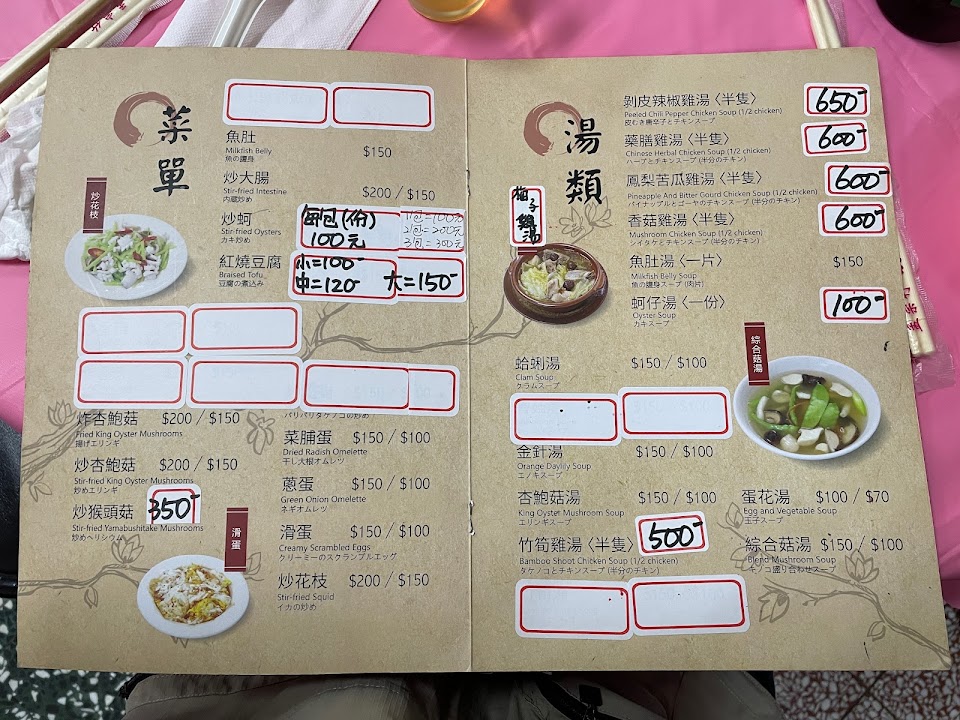 菜單
魚肚
Milkfish Belly
魚の腰身
$150
炒大腸
Stir-fried Intestine
内蔵炒め
$200 / $150
炒蚵
Stir-fried Oysters
カキ炒め
每包(份)
100元
1包=100元
2包=200元
3包=300元
紅燒豆腐
Braised Tofu
豆腐の煮込み
小=100-
中=120-
大=150-
炒花枝
炸杏鮑菇 $200 / $150
Fried King Oyster Mushrooms
揚げエリンギ
炒杏鮑菇 $200 / $150
Stir-fried King Oyster Mushrooms
炒めエリンギ
炒猴頭菇 350-
Stir-fried Yamabushitake Mushrooms
炒めヘリシウム
滑蛋
パリパリタケノコの炒め
菜脯蛋 $150 / $100
Dried Radish Omelette
干し大根オムレツ
蔥蛋 $150 / $100
Green Onion Omelette
ネギオムレツ
滑蛋 $150 / $100
Creamy Scrambled Eggs
クリーミーのスクランブルエッグ
炒花枝 $200 / $150
Stir-fried Squid
イカの炒め
湯類
剝皮辣椒雞湯〈半隻〉 650-
Peeled Chili Pepper Chicken Soup (1/2 chicken)
皮むき唐辛子とチキンスープ
藥膳雞湯〈半隻〉 600-
Chinese Herbal Chicken Soup (1/2 chicken)
ハーブとチキンスープ (半分のチキン)
鳳梨苦瓜雞湯〈半隻〉 600-
Pineapple And Bitter Gourd Chicken Soup (1/2 chicken)
パイナップルとゴーヤのチキンスープ (半分のチキン)
香菇雞湯〈半隻〉 600-
Mushroom Chicken Soup (1/2 chicken)
シイタケとチキンスープ (半分のチキン)
魚肚湯〈一片〉 $150
Milkfish Belly Soup
魚の腰身スープ (肉片)
蚵仔湯〈一份〉 100-
Oyster Soup
カキスープ
梅子雞湯
綜合菇湯
蛤蜊湯 $150 / $100
Clam Soup
クラムスープ
金針湯 $150 / $100
Orange Daylily Soup
エノキスープ
杏鮑菇湯 $150 / $100
King Oyster Mushroom Soup
エリンギスープ
竹筍雞湯〈半隻〉 500-
Bamboo Shoot Chicken Soup (1/2 chicken)
タケノコとチキンスープ (半分のチキン)
蛋花湯 $100 / $70
Egg and Vegetable Soup
玉子スープ
綜合菇湯 $150 / $100
Blend Mushroom Soup
キノコ盛り合わせスープ